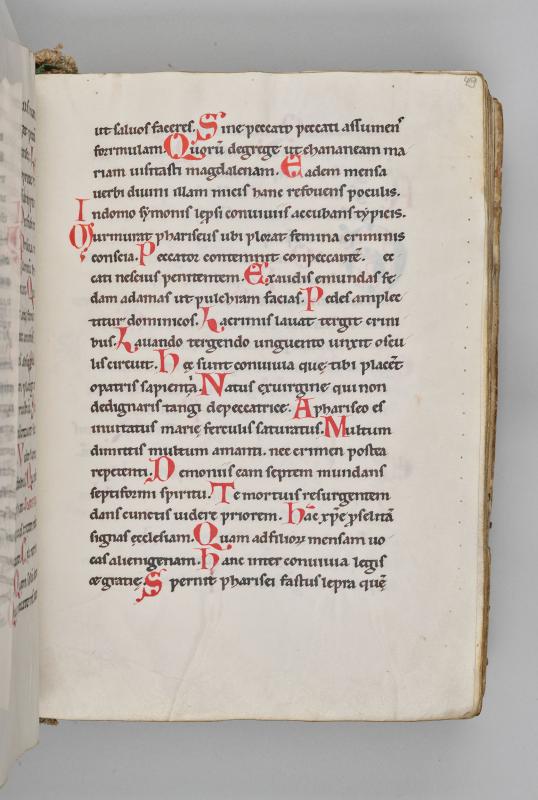 49
ut saluos faceres. Sine peccato peccati assumens
formulam. Quorū degrege ut chananeam ma
riam uisitasti magdalenam. Eadem mensa
uerbi diuini illam micis hanc refouens poculis.
Indomo symonis leprsi conuiuiis accubans typicis.
Qurmurat phariseus ubi plorat femina criminis
conscia. Peccator contemnit conpeccantē. ec
cati nescius penitentem. Exaudis emundas fe
dam adamas ut pulchram facias. Pedes amplec
titur dominicos. Lacrimis lauat tergit crini
bus. Lauando tergendo unguento unxit oscu
lis circuit. Hęc sunt conuiuia quę tibi placēt
opatris sapientia. Natus exuirgine qui non
dedignaris tangi depeccatrice. A phariseo es
inuitatus marię ferculis saturatus. Multum
dimittis multum amanti. nec crimen postea
repetenti. Demoniis eam septem mundans
septiformi spiritu. Te mortuis resurgentem
dans cunctis uidere priorem. Hāc xp̄e pselitā
signas ęcclesiam. Quam adfilioꝝ mensam uo
cas alienigenam. Hanc inter conuiuia legis
& gratię. Spernit pharisei fastus lepra quę